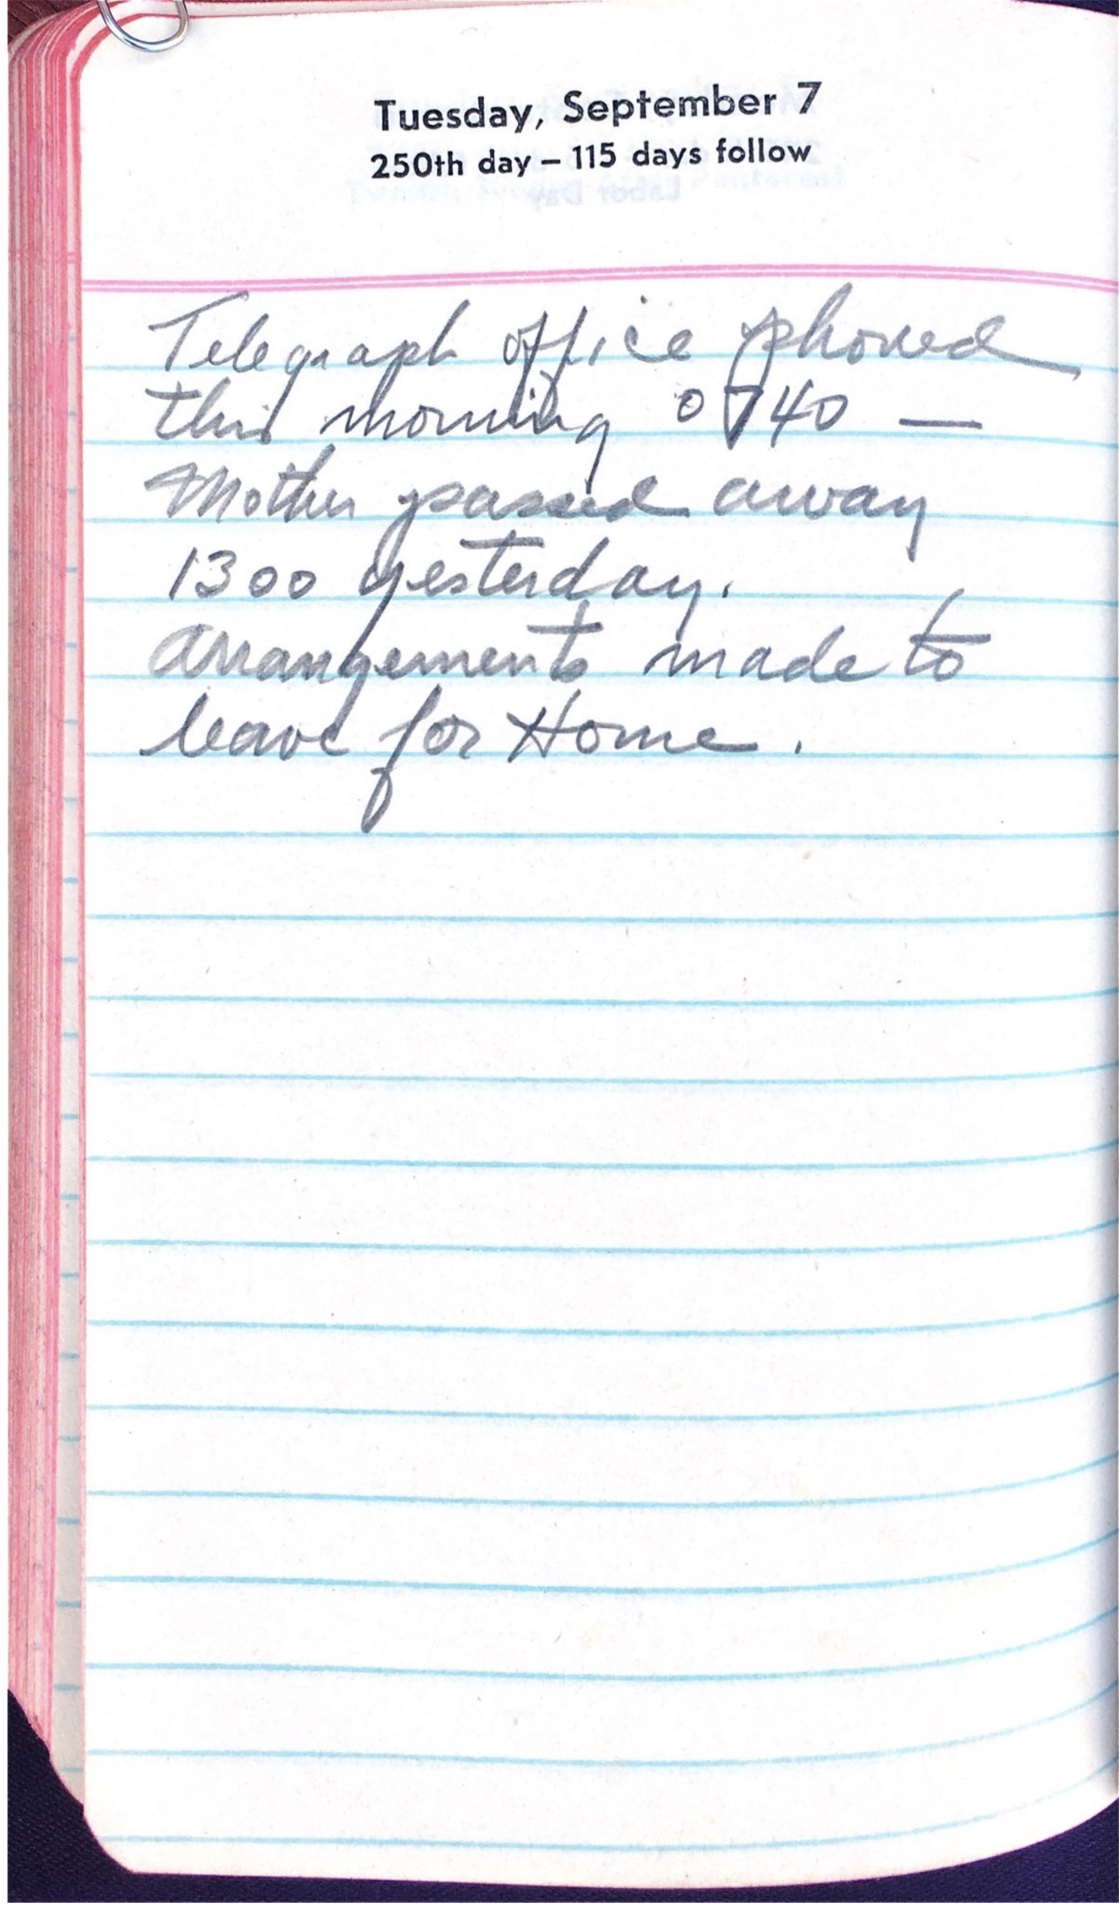 Tuesday, September 7
250th day – 115 days follow
Telegraph office phoned
this morning 0740 —
Mother passed away
1300 yesterday.
Arrangements made to
leave for Home.